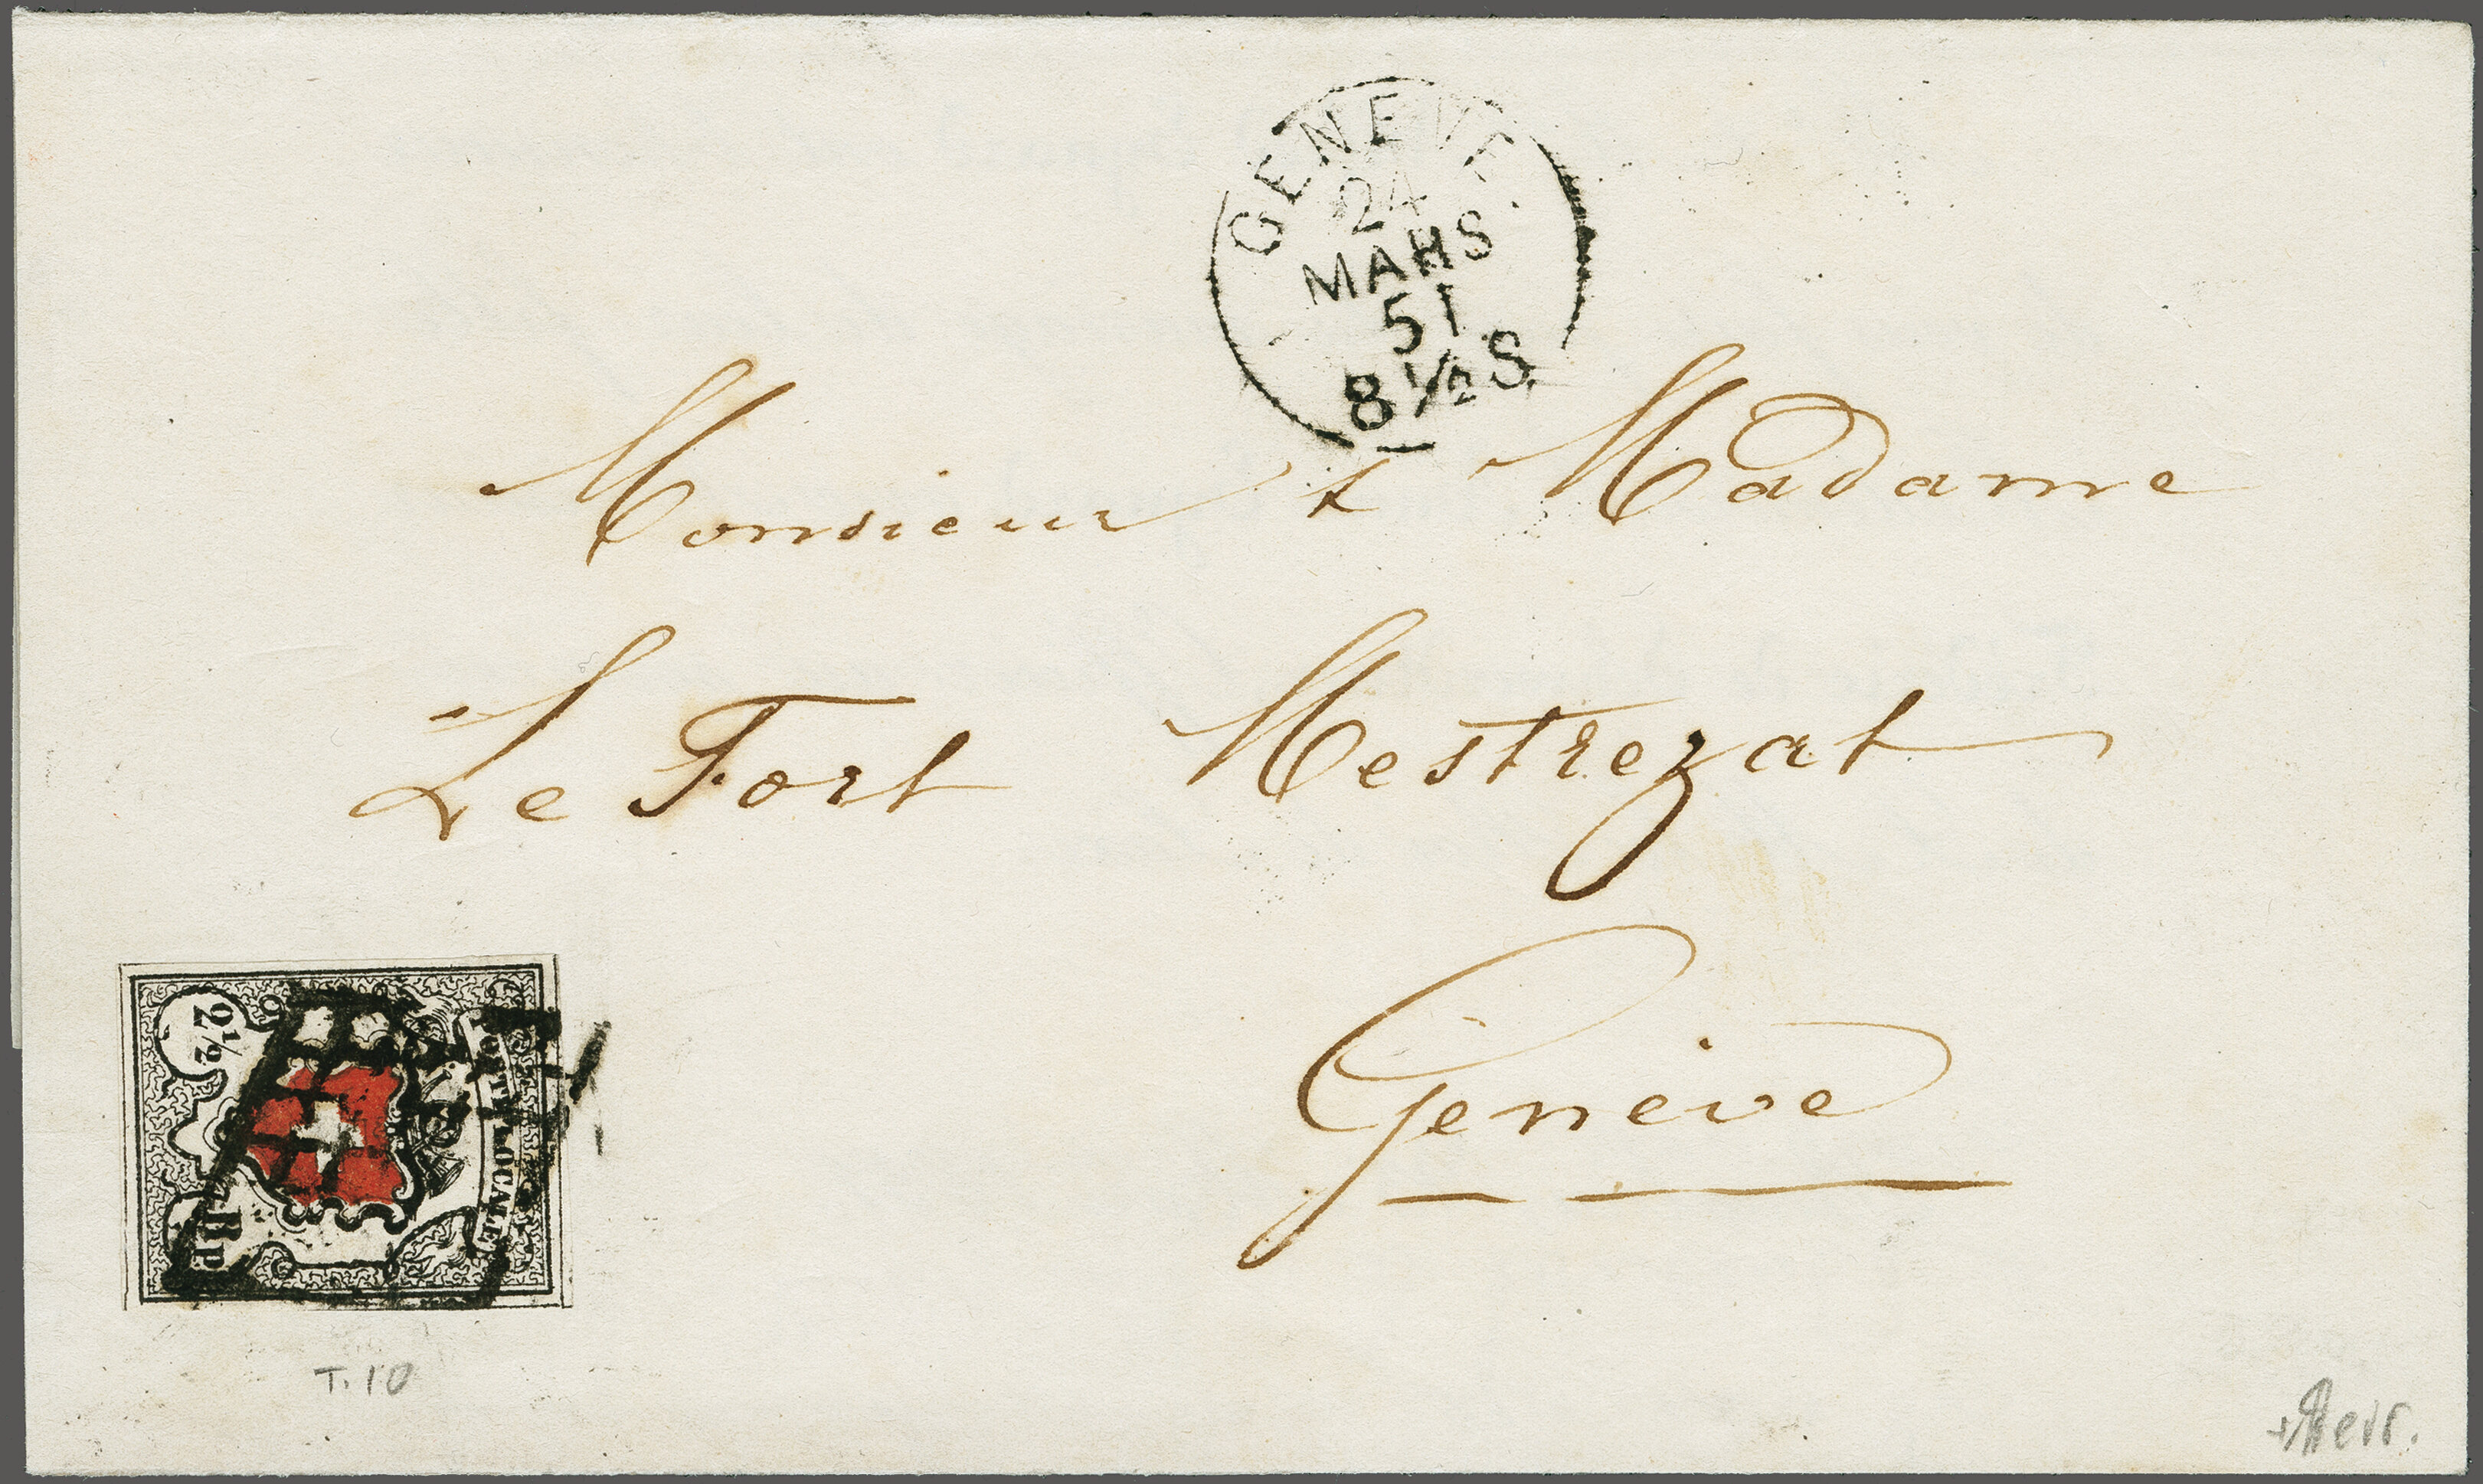 GENEVE
24
MARS
51
8½S
Monsieur & Madame
Le Fort Mestrezat
Genève
POSTE LOCALE
2½
Rp
T.10